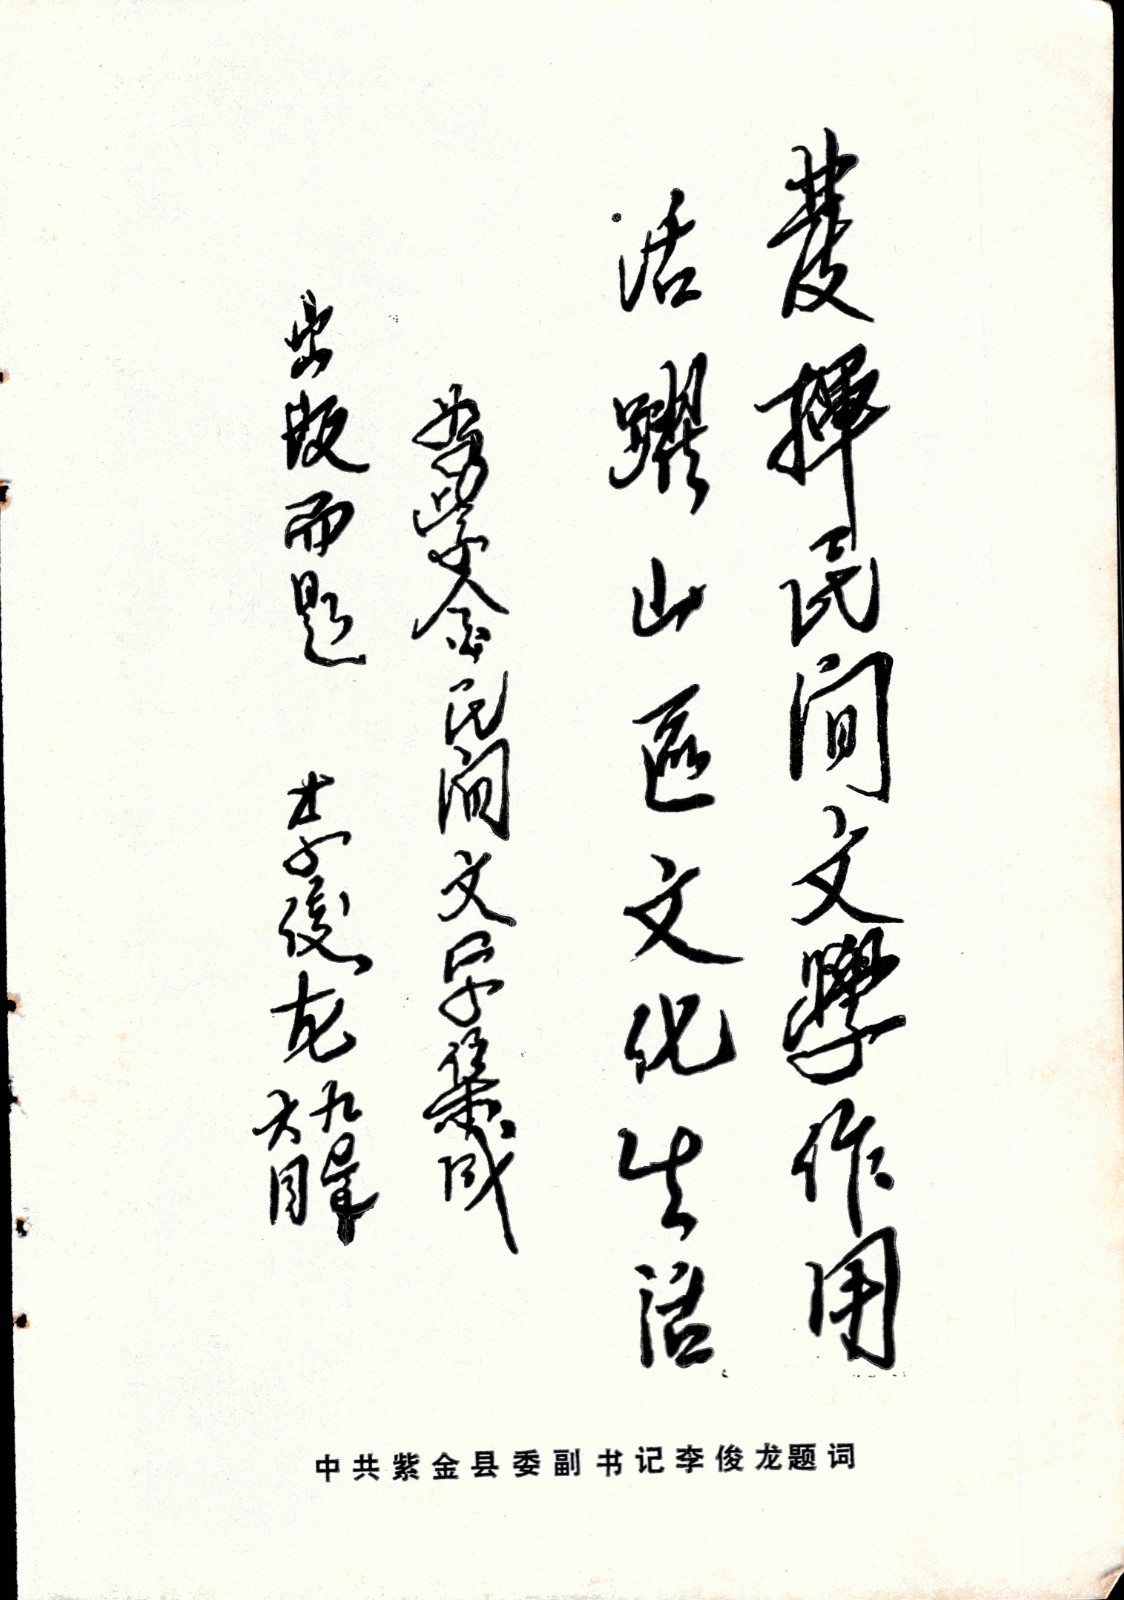 發揮民间文學作用
活躍山區文化生活
为紫金民间文学集成
出版而题 李俊龙
九 年
六月
中共紫金县委副书记李俊龙题词